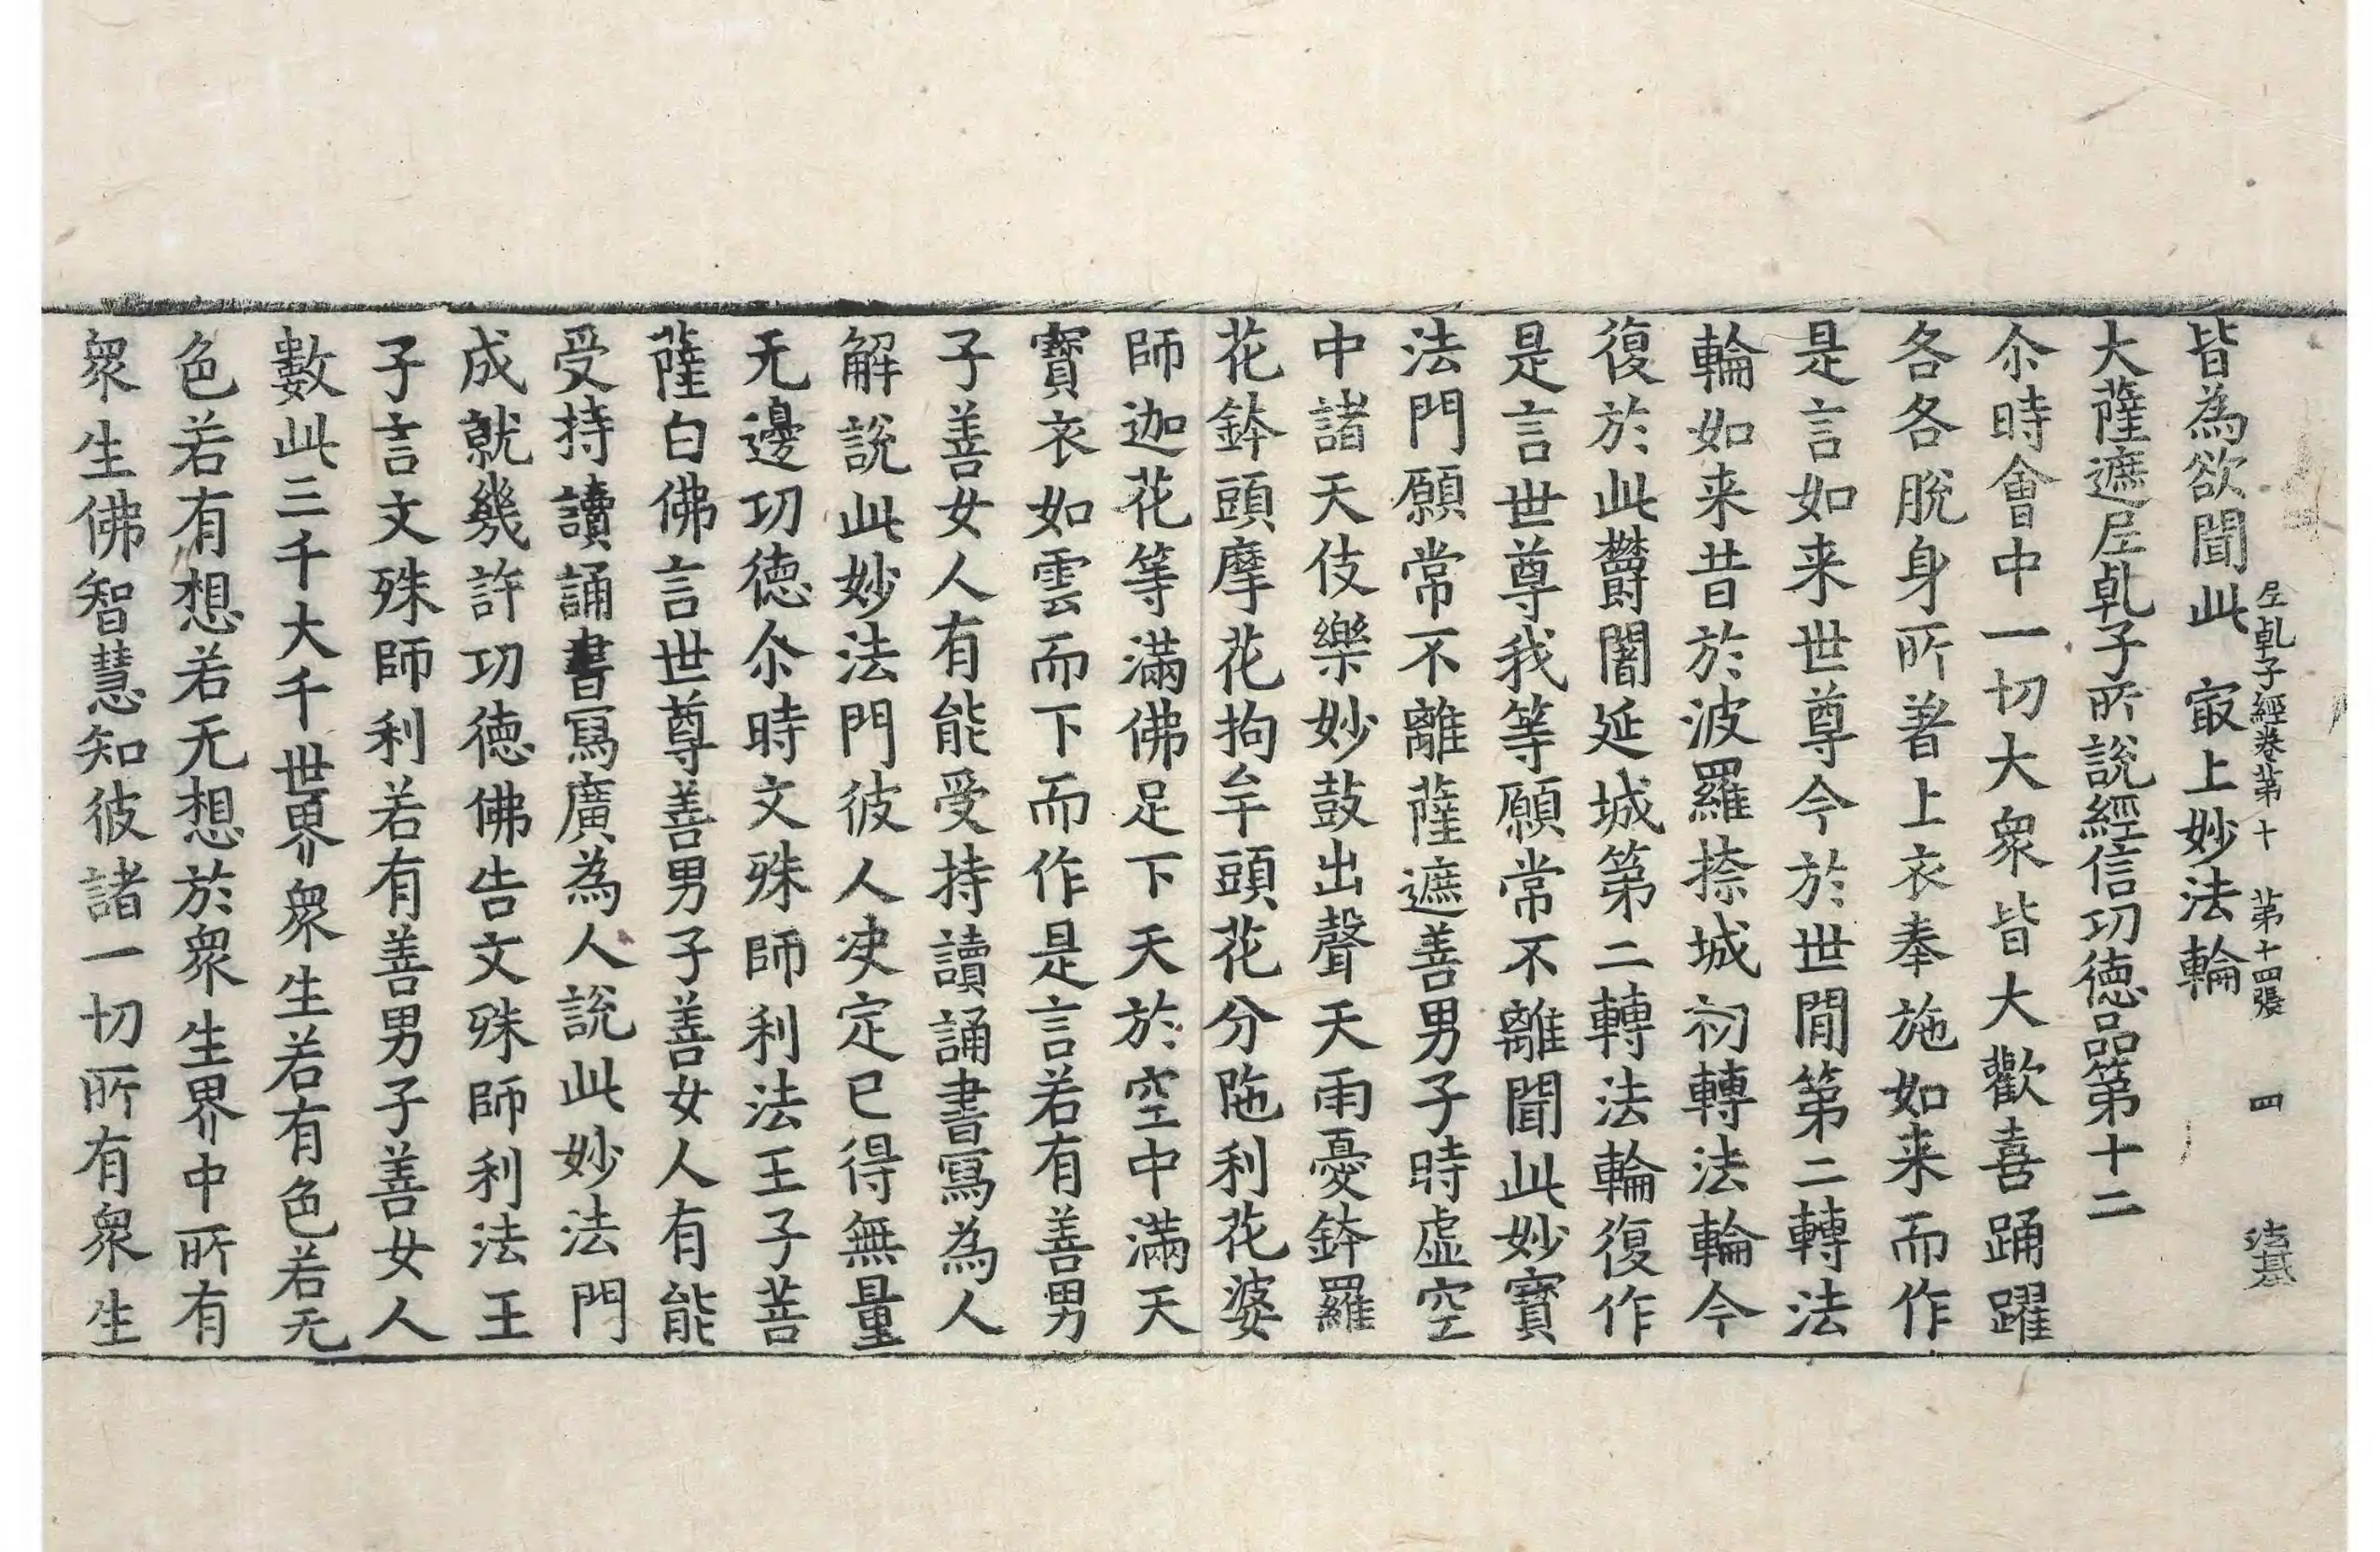 𡰱乹子經卷第十　第十四張　四
皆為欲聞此　㝡上妙法輪
大薩遮𡰱乹子所說經信功德品第十二
尒時會中一切大衆皆大歡喜踊躍
各各脫身所著上衣奉施如来而作
是言如来世尊今於世間第二轉法
輪如来昔於波羅㮈城初轉法輪今
復於此欝闍延城第二轉法輪復作
是言世尊我等願常不離聞此妙寶
法門願常不離薩遮善男子時虛空
中諸天伎樂妙鼓出聲天雨憂鉢羅
花鉢頭摩花拘牟頭花分陁利花婆
師迦花等滿佛足下天於空中滿天
寶衣如雲而下而作是言若有善男
子善女人有能受持讀誦書寫為人
解說此妙法門彼人决定已得無量
无邊功德尒時文殊師利法王子菩
薩白佛言世尊善男子善女人有能
受持讀誦書寫廣為人說此妙法門
成就幾許功德佛告文殊師利法王
子言文殊師利若有善男子善女人
數此三千大千世界衆生若有色若无
色若有想若无想於衆生界中所有
衆生佛智慧知彼諸一切所有衆生